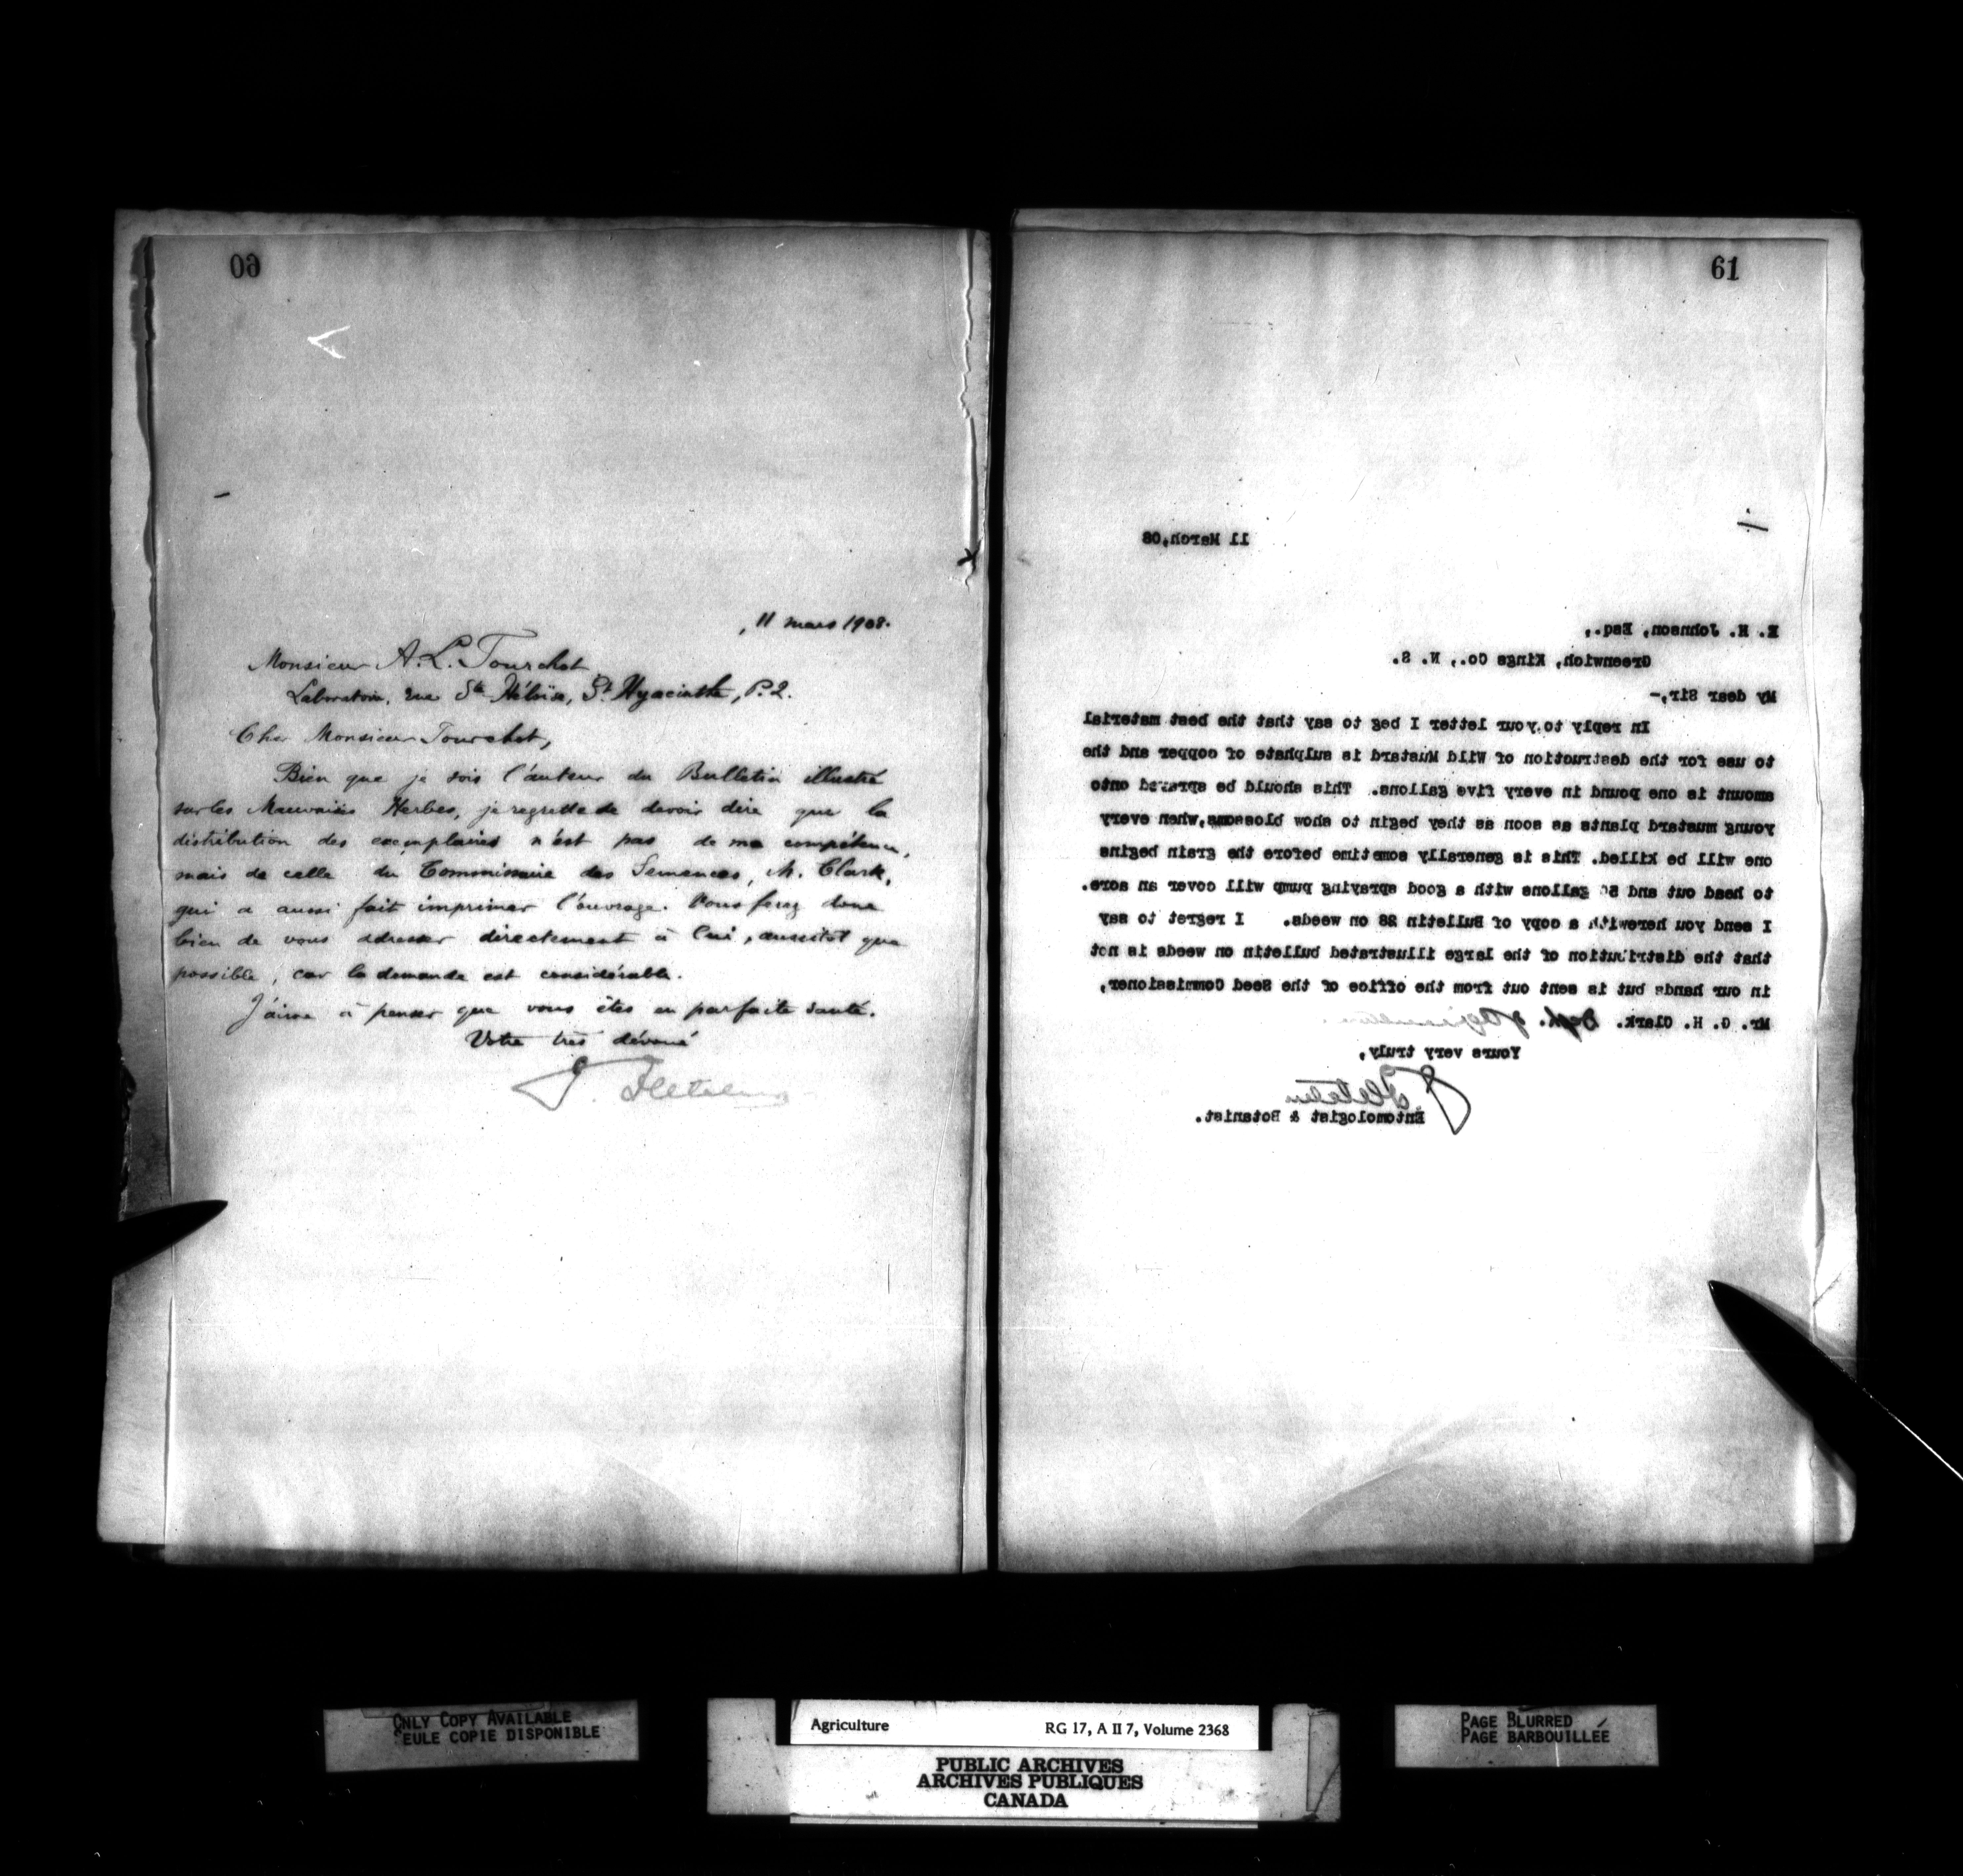 60
11 mars 1908.
Monsieur A. L. Tourchot
Laboratoire, rue Ste Héloïse, St Hyacinthe, P.Q.
Cher Monsieur Tourchot,
Bien que je sois l'auteur du Bulletin illustré
sur les Mauvaises Herbes, je regrette de devoir dire que la
distribution des exemplaires n'est pas de ma compétence,
mais de celle du Commissaire des Semences, M. Clark,
qui a aussi fait imprimer l'ouvrage. Vous ferez donc
bien de vous adresser directement à lui, aussitôt que
possible, car la demande est considérable.
J'aime à penser que vous êtes en parfaite santé.
Votre très dévoué
J. Fletcher
61
11 March,08
E. H. Johnson, Esq.,
Greenwich, Kings Co., N. S.
My dear Sir,-
In reply to your letter I beg to say that the best material
to use for the destruction of Wild Mustard is sulphate of copper and the
amount is one pound in every five gallons. This should be sprayed onto
young mustard plants as soon as they begin to show blossoms,when every
one will be killed. This is generally sometime before the grain begins
to head out and 50 gallons with a good spraying pump will cover an acre.
I send you herewith a copy of Bulletin 28 on weeds. I regret to say
that the distribution of the large illustrated bulletin on weeds is not
in our hands but is sent out from the office of the Seed Commissioner,
Mr. G. H. Clark. Dept. of Agriculture
Yours very truly,
J. Fletcher
Entomologist & Botanist.
ONLY COPY AVAILABLE
SEULE COPIE DISPONIBLE
Agriculture RG 17, A II 7, Volume 2368
PUBLIC ARCHIVES
ARCHIVES PUBLIQUES
CANADA
PAGE BLURRED
PAGE BARBOUILLÉE